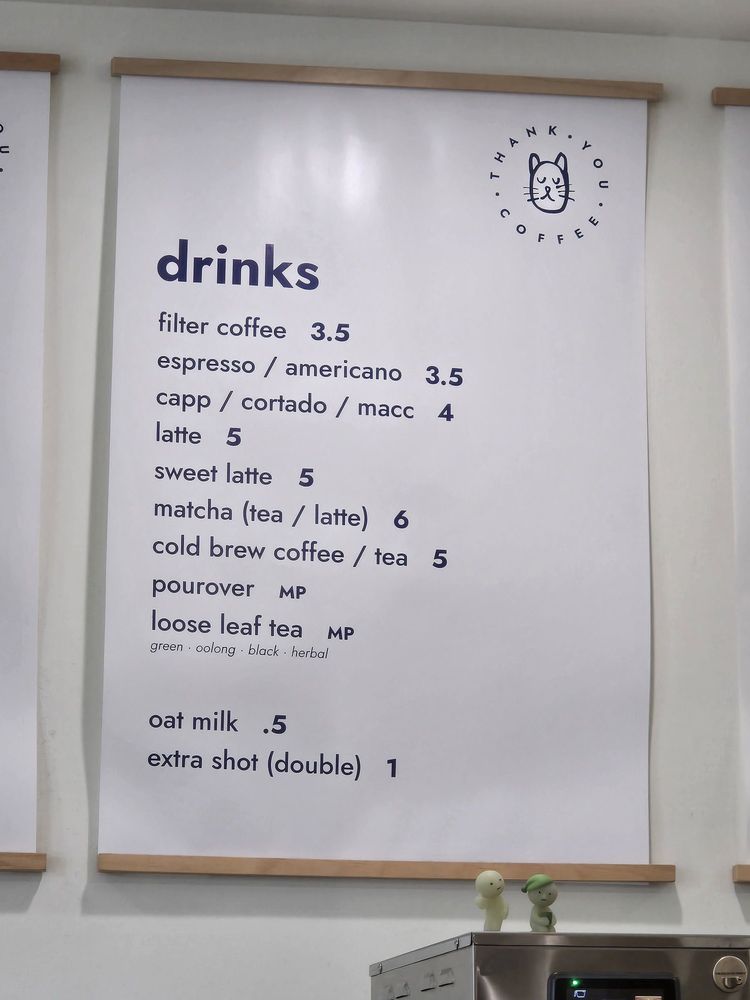 THANK · YOU · COFFEE ·
drinks
filter coffee 3.5
espresso / americano 3.5
capp / cortado / macc 4
latte 5
sweet latte 5
matcha (tea / latte) 6
cold brew coffee / tea 5
pourover MP
loose leaf tea MP
green · oolong · black · herbal
oat milk .5
extra shot (double) 1